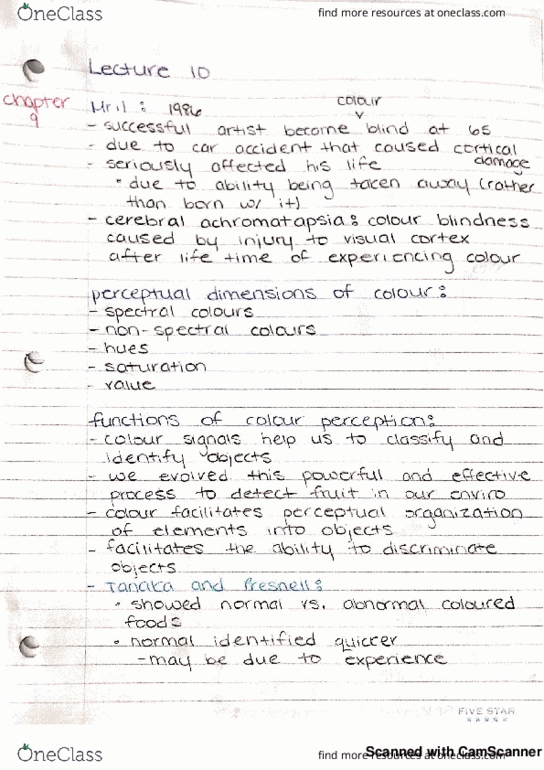 OneClass
find more resources at oneclass.com
Lecture 10
chapter
9
colour
Mr. I : 1986
- successful artist become blind at 65
- due to car accident that caused cortical
damage
- seriously affected his life
• due to ability being taken away (rather
than born w/ it)
- cerebral achromatapsia: colour blindness
caused by injury to visual cortex
after life time of experiencing colour
perceptual dimensions of colour:
- spectral colours
- non-spectral colours
- hues
- saturation
- value
functions of colour perception:
- colour signals help us to classify and
identify objects
- we evolved this powerful and effective
process to detect fruit in our enviro
- colour facilitates perceptual organization
of elements into objects
- facilitates the ability to discriminate
objects
- Tanaka and Presnell:
• showed normal vs. abnormal coloured
foods
• normal identified quicker
- may be due to experience
FIVE STAR
OneClass
find more resources at oneclass.com
Scanned with CamScanner